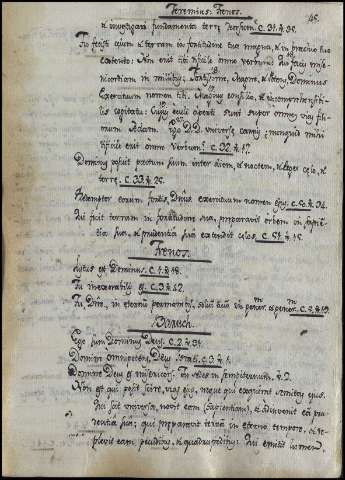 Jeremiæ. Trenos.
48.
& investigari fundamenta terræ deorsum. C. 31. ℣. 38.
Tu fecisti cælum & terram in fortitudine tua magna, & in brachio tuo
extento: Non erit tibi difficile omne verbum. Qui facis miser-
icordiam in millibus. Fortissime, Magne, & Potens, Dominus
Exercituum nomen tibi. Magnus consilio, & incomprehensibi-
lis cogitatu: Cujus oculi aperti sunt super omnes vias fili-
orum Adam. Ego D. D. universæ carnis; numquid mihi
difficile erit omne verbum? C. 32. ℣. 17.
Dominus posuit pactum suum inter diem, & noctem, & leges cælo, &
terræ. C. 33. ℣. 25.
Redemptor eorum fortis, Dominus exercituum nomen ejus. C. 50. ℣. 34.
Qui fecit terram in fortitudine sua, præparavit orbem in sapien-
tia sua, & prudentia sua extendit cælos. C. 51. ℣. 15.
Trenos.
Justus est Dominus. C. 1. ℣. 18.
Tu inexorabilis es. C. 3. ℣. 42.
Tu Dne, in eternum permanebis, solium tuum in C. 5. ℣. 19.
Baruch.
Ego sum Dominus Deus. C. 2. ℣. 31.
Domine omnipotens, Deus Israel. C. 3. ℣. 1.
Domine Deus es misericors. sedes in sempiternum. ℣. 2.
Non est qui possit scire vias ejus, neque qui exquirat semitas ejus.
Qui scit universa, novit eam (sapientiam), & adinvenit eam pru-
dentia sua; qui præparavit terram in eterno tempore, & re-
plevit eam pecudibus, & quadrupedibus. Qui emittit lumen,